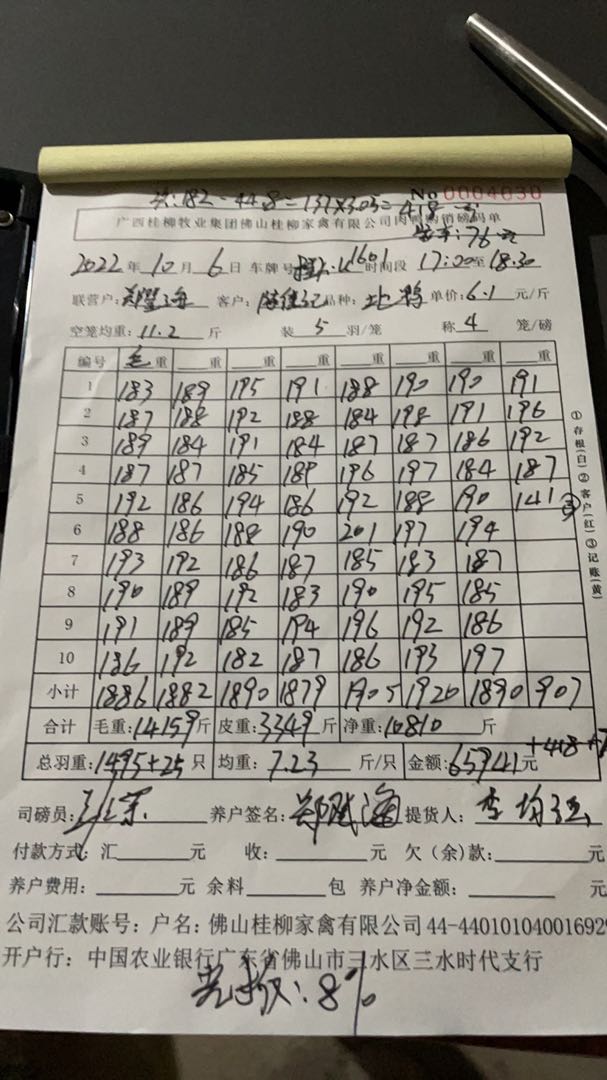 次:182-44.8=137×3.05=418元
No 0004030
广西桂柳牧业集团佛山桂柳家禽有限公司肉鸭购销磅码单
76元
2022年10月6日 车牌号 时间段 17:00至18:30
联营户: 客户: 品种: 单价:6.1元/斤
空笼均重:11.2斤 装5羽/笼 称4笼/磅
编号 毛重 重 重 重 重 重 重 重
1 183 189 195 191 188 190 190 191
2 187 188 192 188 184 198 191 196
3 189 184 191 184 187 187 186 192
4 187 187 185 189 196 197 184 187
5 192 186 194 186 192 188 190 141③
6 188 186 188 190 201 197 194
7 193 192 186 187 185 183 187
8 190 189 192 183 190 195 185
9 191 189 185 194 196 192 186
10 186 192 182 187 186 193 197
小计 1886 1882 1890 1879 1905 1920 1890 907
合计 毛重:14159斤 皮重:3349斤 净重:10810斤
总羽重:1495+25只 均重:7.23斤/只 金额:65941元 +418+7
司磅员: 养户签名: 提货人:
付款方式:汇 元 收: 元 欠(余)款: 元
养户费用: 元 余料 包 养户净金额: 元
公司汇款账号:户名:佛山桂柳家禽有限公司 44-44010104001692
开户行:中国农业银行广东省佛山市三水区三水时代支行
8%
①存根(白)②客户(红)③记账(黄)